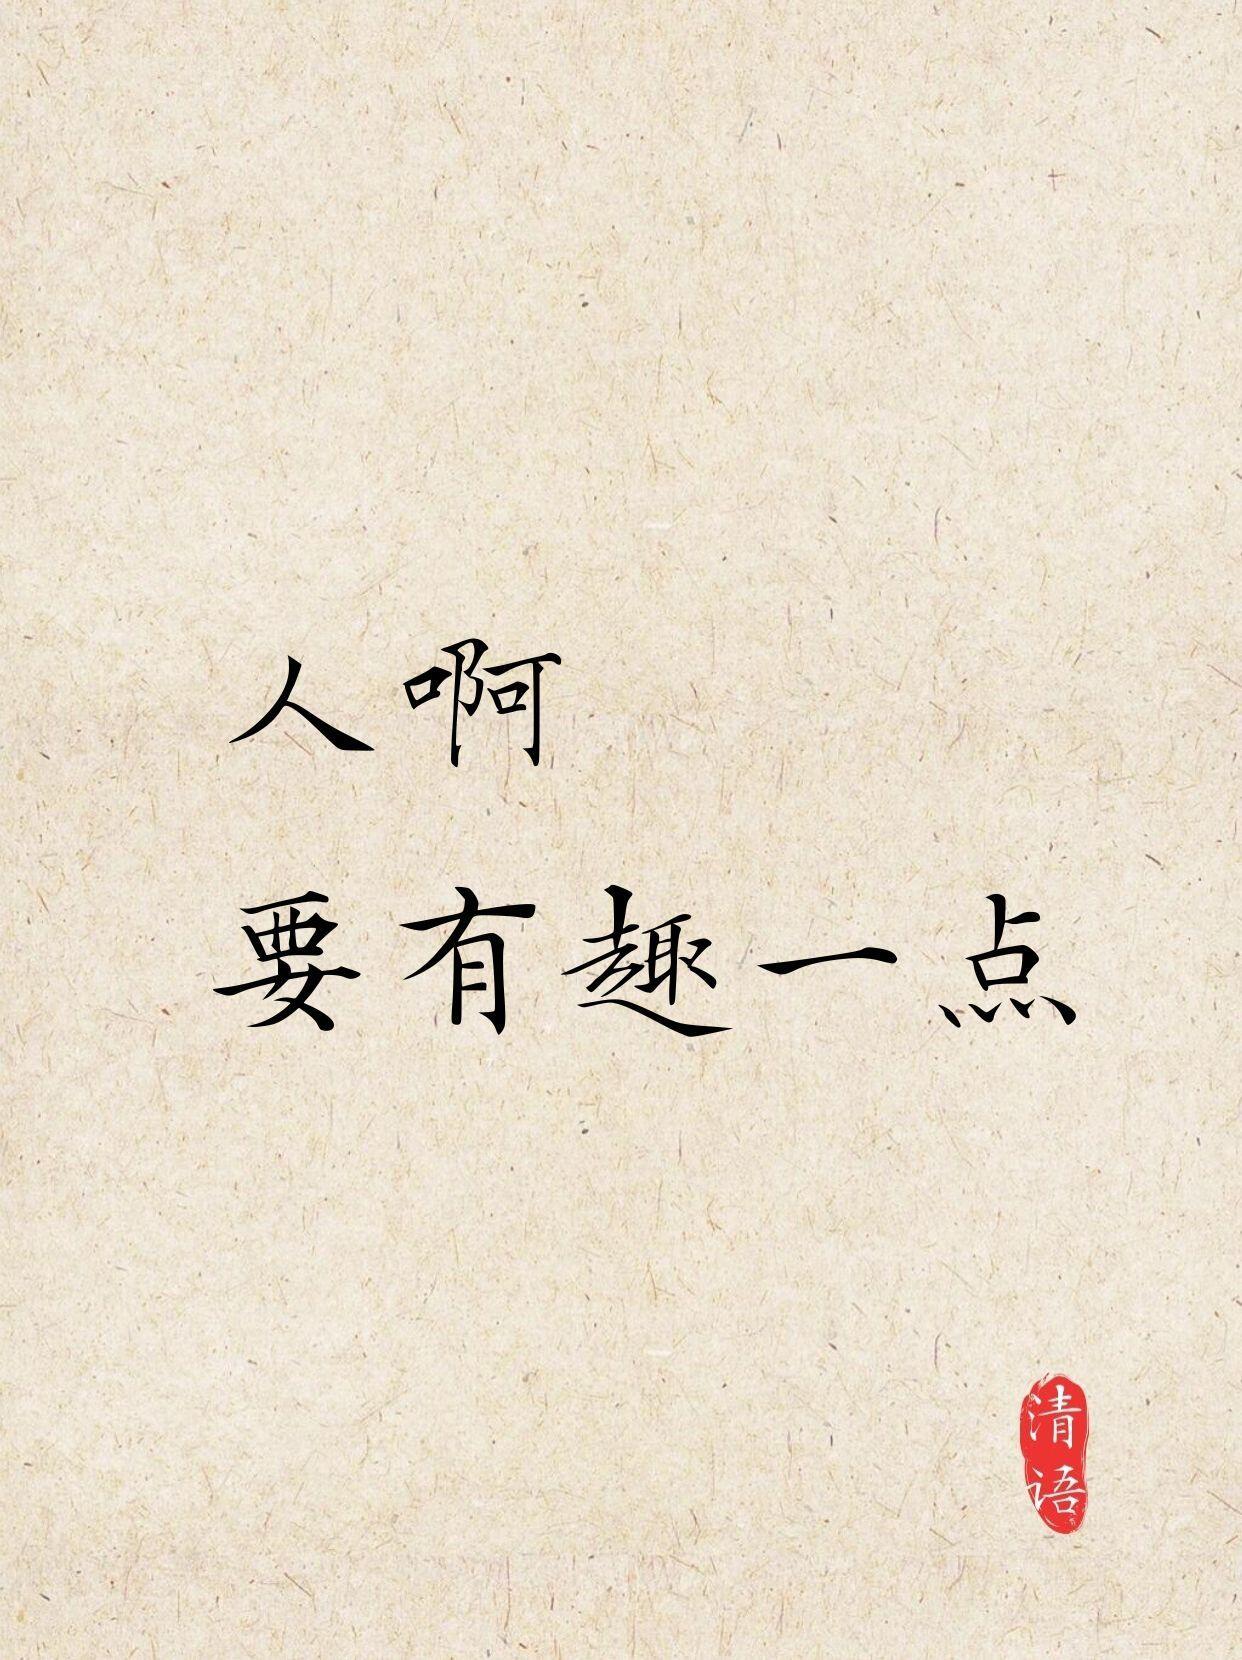 人啊
要有趣一点
清语